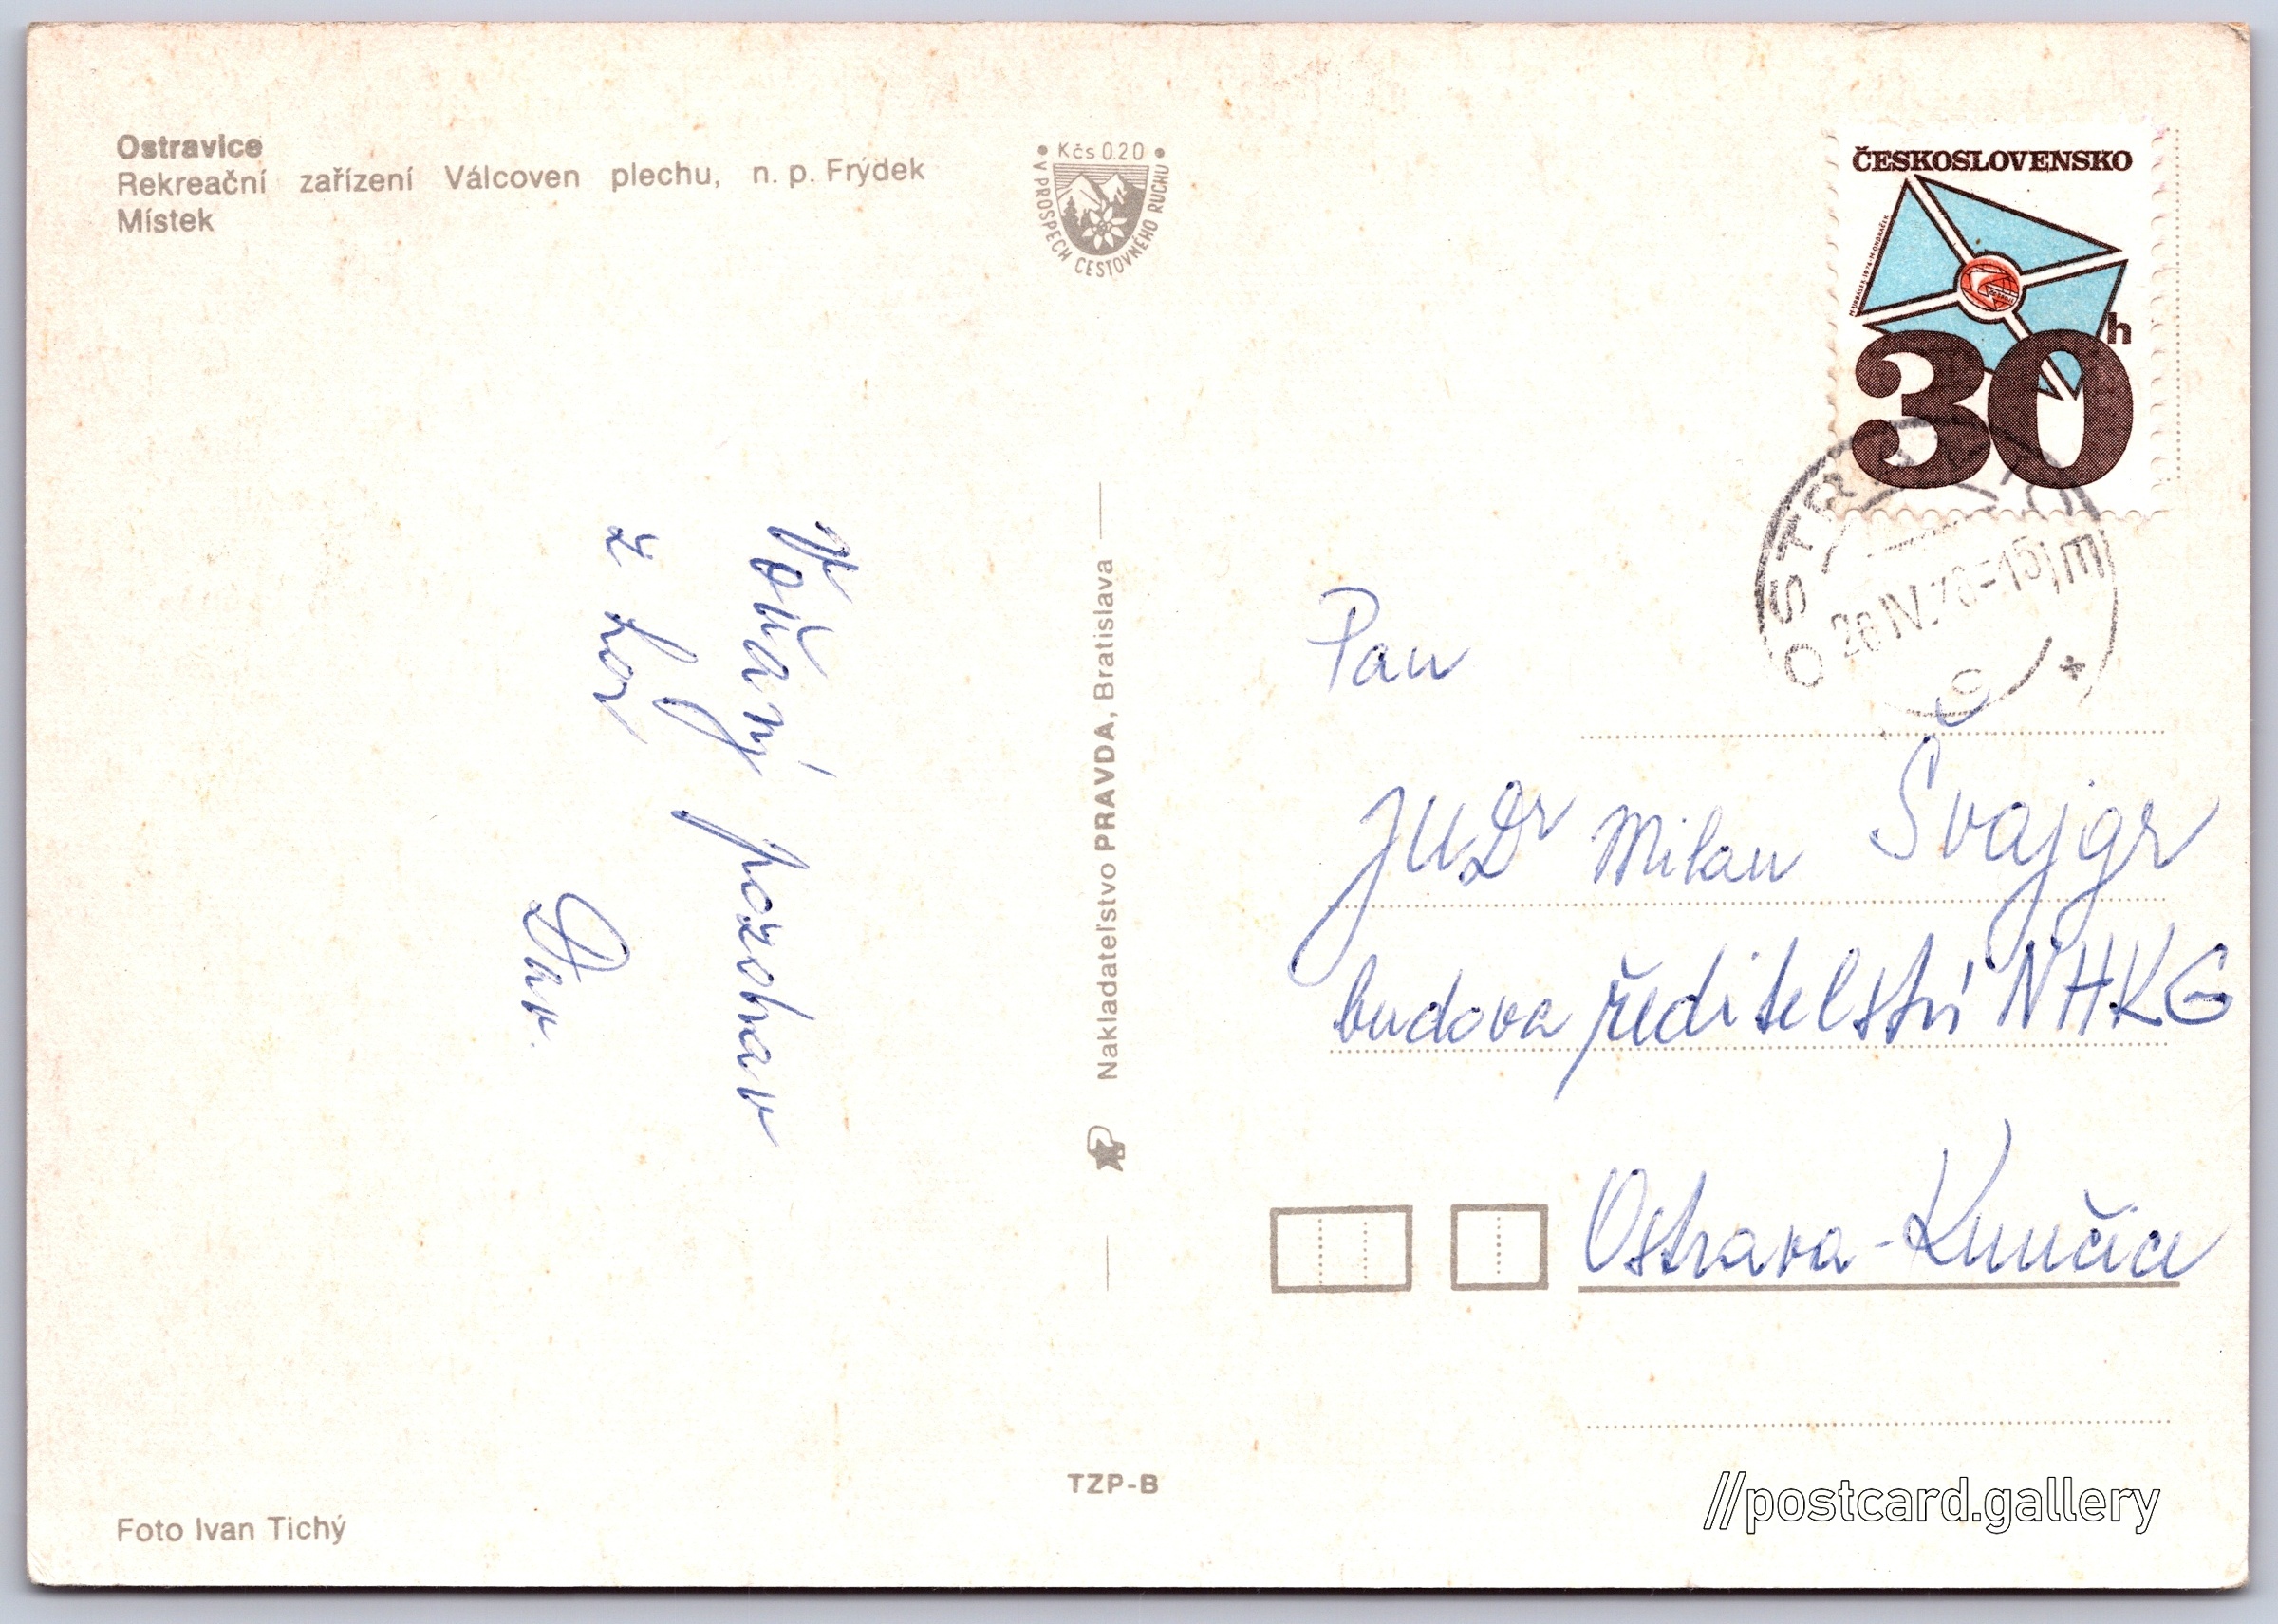 Ostravice
Rekreační zařízení Válcoven plechu, n. p. Frýdek
Místek
• Kčs 0.20 •
V PROSPECH CESTOVNÉHO RUCHU
ČESKOSLOVENSKO
30h
OSTRAVA
26.IV.78-15
Pan
JUDr Milan Švajgr
budova ředitelství NHKG
Ostrava-Kunčice
pozdrav
z hor
Nakladateľstvo PRAVDA, Bratislava
TZP-B
Foto Ivan Tichý
//postcard.gallery